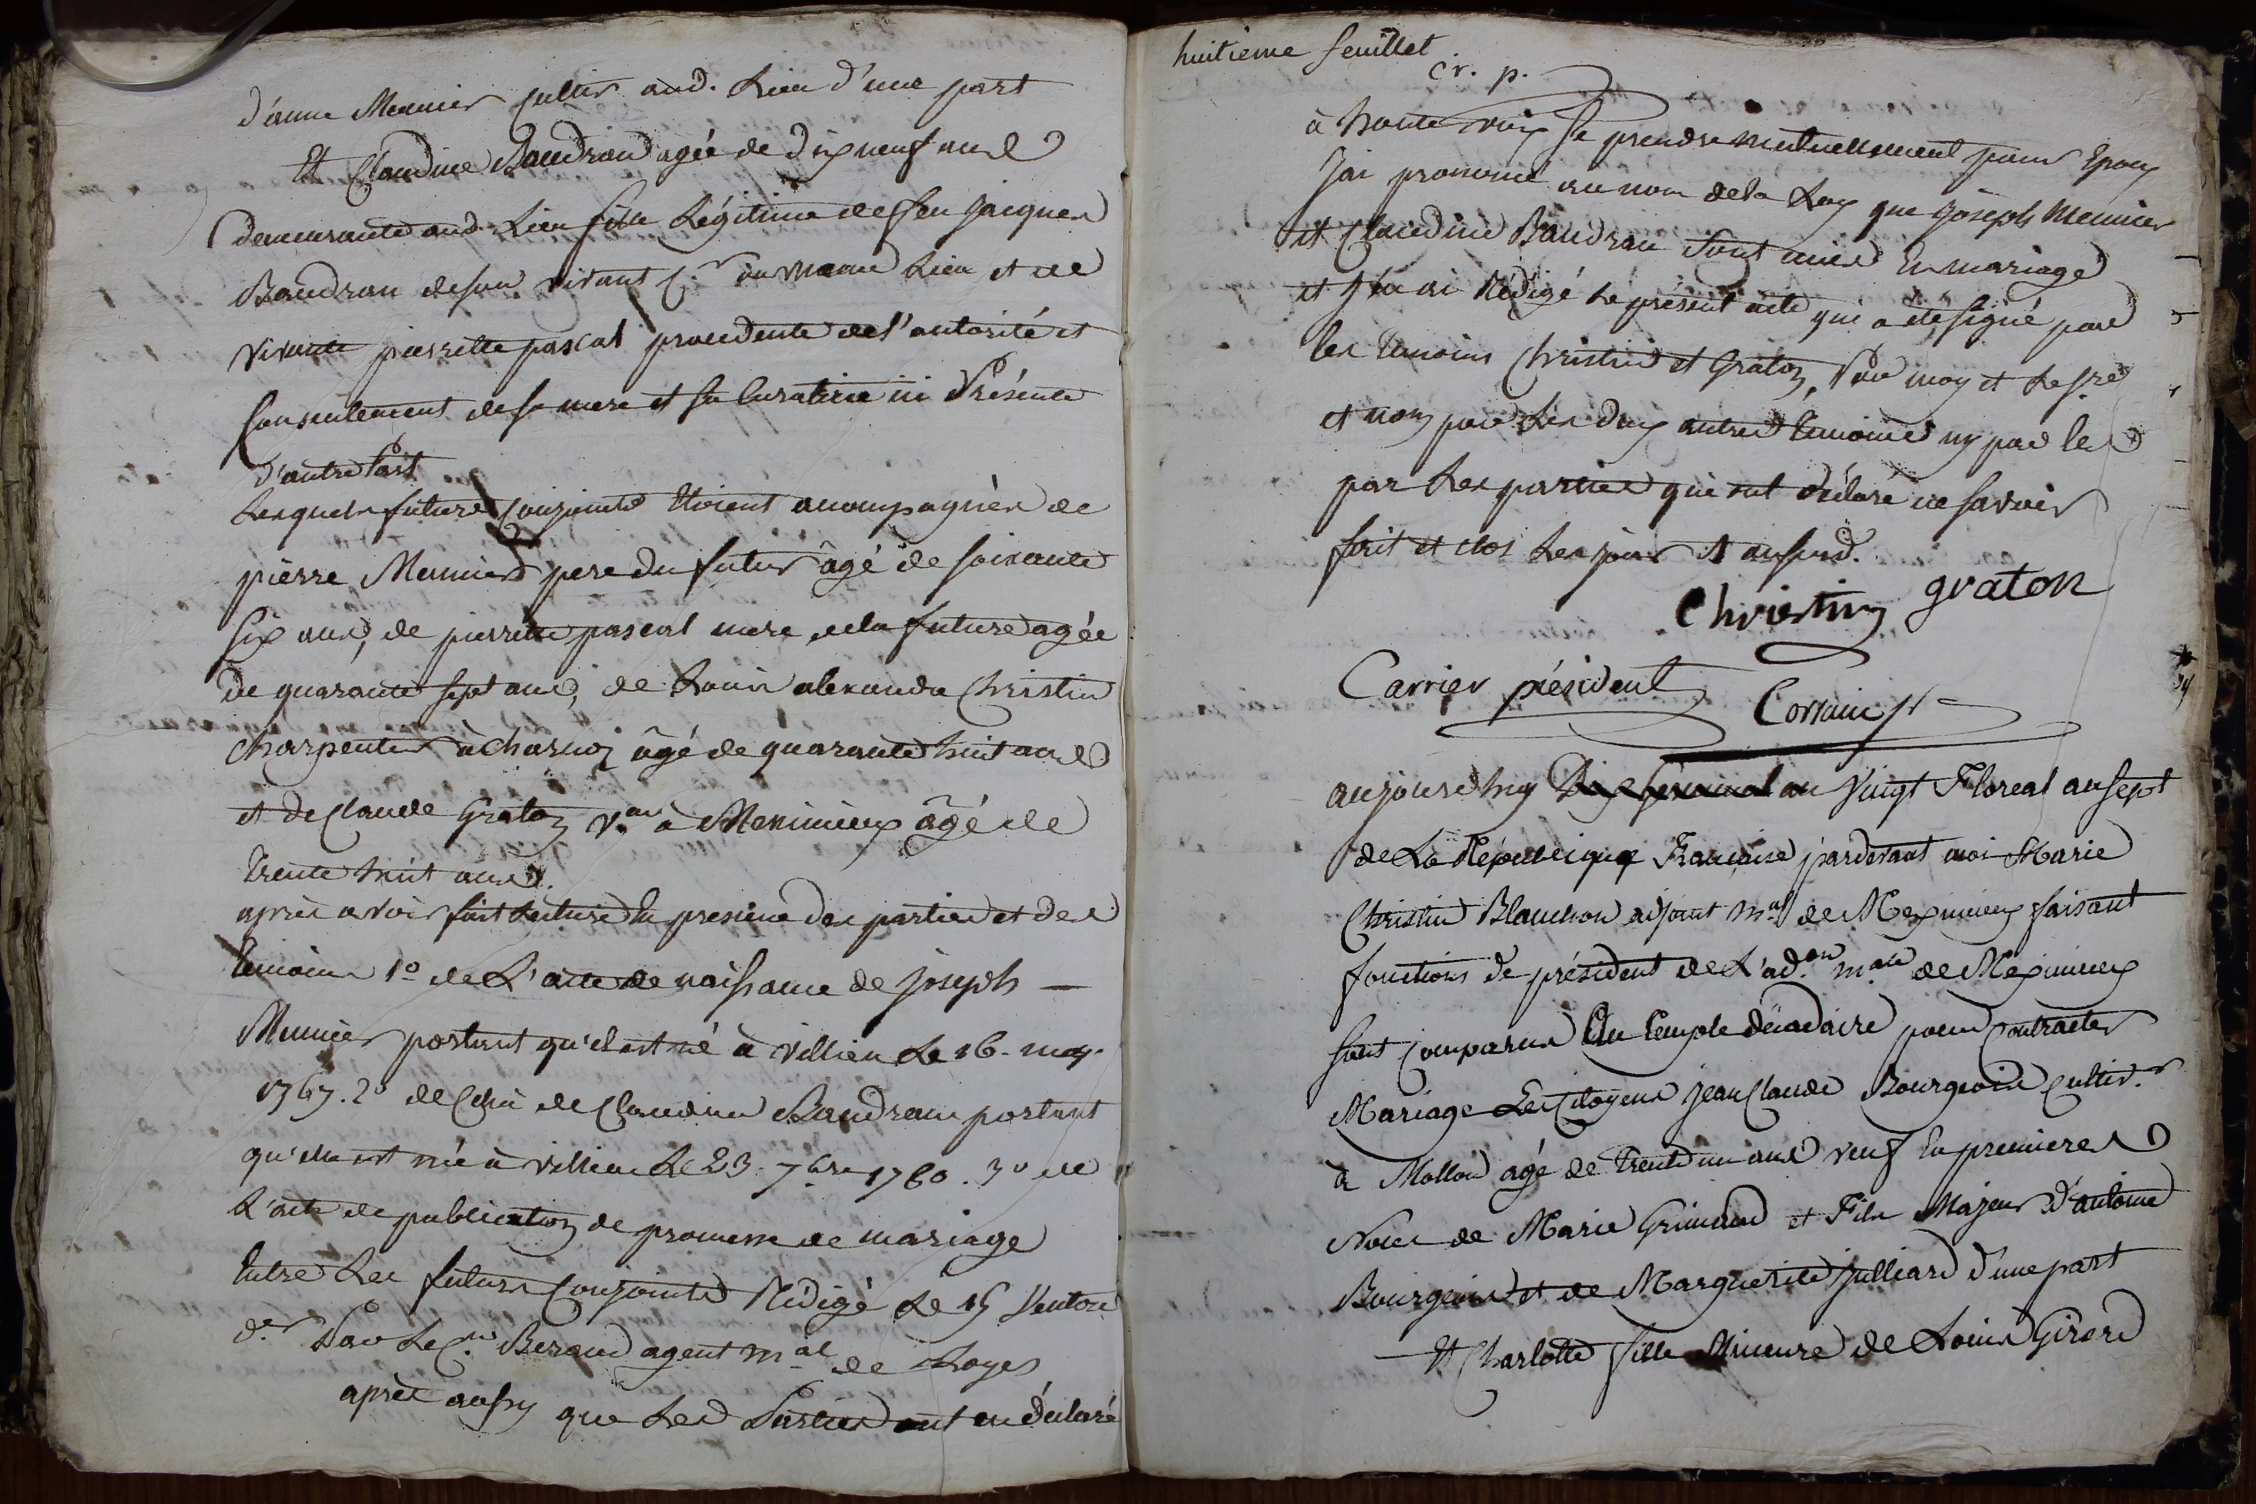 d'anne Meunier cultivr aud. Lieu d'une part
Et Claudine Baudran agée de dix neuf ans
demeurante aud. Lieu fille Légitime de feu jacques
Baudran deson vivant C.r au meme Lieu et de
vivante pierrette pascal procedente de l'autorité et
consentement de sa mere et sa Curatrice ici Présente
d'autre Part
Lesquels futurs conjoints Etoient acompagnés de
pierre Meunier pere du futur âgé de soixante
six ans, de pierrette pascal mere de la future agée
de quarante sept ans, de Louis alexandre Christin
charpentier à charnoz âgé de quarante huit ans
et de Claude Graton à Meximieux âgé de
trente huit ans.
après avoir fait Lecture En presence des parties et des
temoins 1° de L'acte de naissance de joseph —
Meunier portant qu'il est né à villieu Le 16. may
1767. 2° de Celui de Claudine Baudran portant
qu'elle est née à villieu Le 23 7bre 1780. 3° de
L'acte de publication de promesse de mariage
Entre Les futurs conjoints Rédigé Le 15 Ventose
d.er Par Le C.en Beraud agent m.al de Loyes
après aussy que Les Parties ont eu déclaré
huitieme feuillet
cr. p.
à haute voix se prendre mutuellement pour Epoux
J'ai prononcé au nom de la Loy que joseph Meunier
et Claudine Baudran Sont unis En mariage
et J'en ai Rédigé Le présent acte qui a été signé par
les temoins Christin et Graton, Par moy et Le sre
et non par Les deux autres temoins ny par les
par Les parties qui ont déclaré ne savoir
fait et clos Les jour et an susd.
Christin graton
Carrier président
aujourd'huy Dix germinal au Vingt Floreal an sept
de La République Française pardevant moi Marie
Christin Blanchon adjoint m.al de Meximieux faisant
fonctions de président de L'ad.on m.ale de Meximieux
sont comparus Au temple décadaire pour Contracter
Mariage Les Citoyens Jean Claude Bourgeois cultiv.r
à Mollon agé de trente un ans veuf En premieres
Noces de Marie Grimaud et Fils Majeur d'antoine
Bourgeois et de Marguerite julliard d'une part
Et Charlotte fille Mineure de Louis Girard